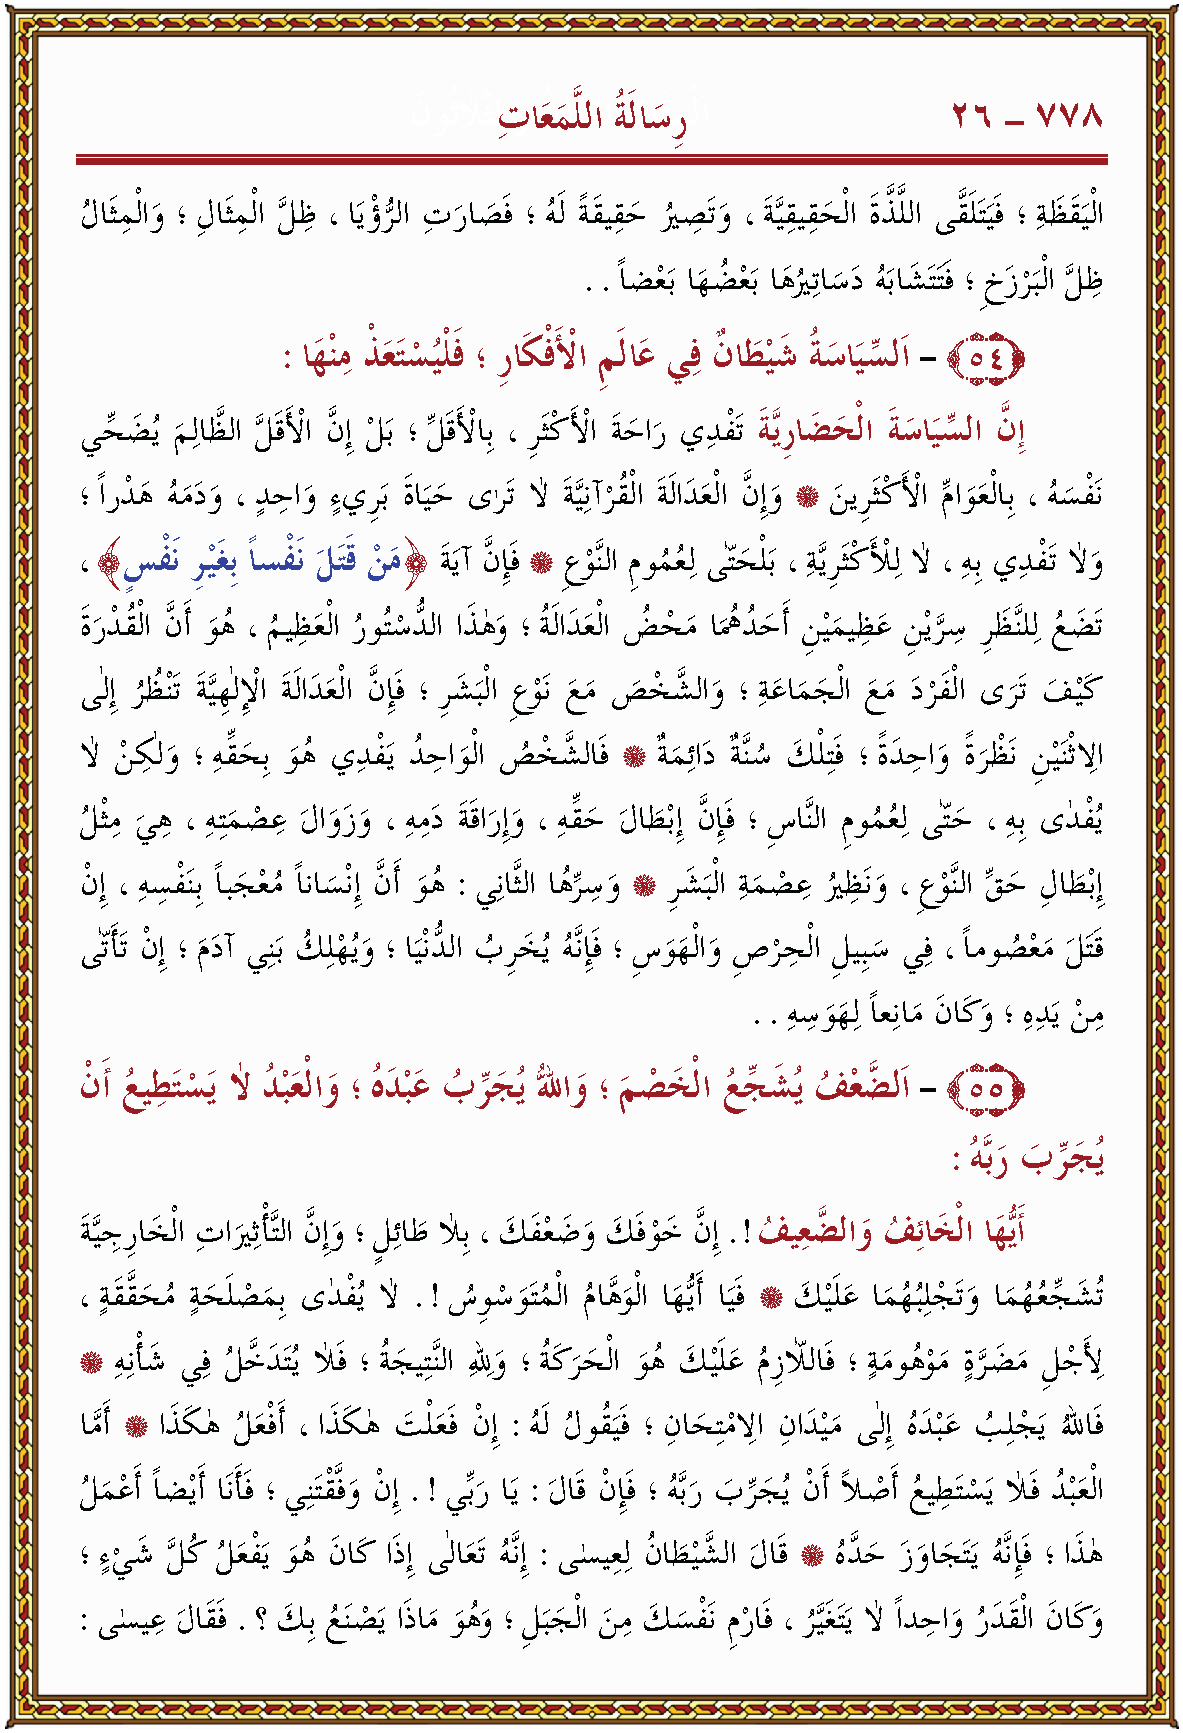 ٧٧٨ – ٢٦ رِسَالَةُ اللَّمَعَاتِ
الْيَقَظَةِ ؛ فَيَتَلَقَّى اللَّذَّةَ الْحَقِيقِيَّةَ ، وَتَصِيرُ حَقِيقَةً لَهُ ؛ فَصَارَتِ الرُّؤْيَا ، ظِلَّ الْمِثَالِ ؛ وَالْمِثَالُ
ظِلَّ الْبَرْزَخِ ؛ فَتَتَشَابَهُ دَسَاتِيرُهَا بَعْضُهَا بَعْضاً . .
﴿ ٥٤ ﴾ – اَلسِّيَاسَةُ شَيْطَانٌ فِي عَالَمِ الْأَفْكَارِ ؛ فَلْيُسْتَعَذْ مِنْهَا :
إِنَّ السِّيَاسَةَ الْحَضَارِيَّةَ تَفْدِي رَاحَةَ الْأَكْثَرِ ، بِالْأَقَلِّ ؛ بَلْ إِنَّ الْأَقَلَّ الظَّالِمَ يُضَحِّي
نَفْسَهُ ، بِالْعَوَامِّ الْأَكْثَرِينَ ۞ وَإِنَّ الْعَدَالَةَ الْقُرْآنِيَّةَ لَا تَرٰى حَيَاةَ بَرِيءٍ وَاحِدٍ ، وَدَمَهُ هَدْراً ؛
وَلَا تَفْدِي بِهِ ، لَا لِلْأَكْثَرِيَّةِ ، بَلْحَتّٰى لِعُمُومِ النَّوْعِ ۞ فَإِنَّ آيَةَ ﴿مَنْ قَتَلَ نَفْساً بِغَيْرِ نَفْسٍ﴾ ،
تَضَعُ لِلنَّظَرِ سِرَّيْنِ عَظِيمَيْنِ أَحَدُهُمَا مَحْضُ الْعَدَالَةِ ؛ وَهٰذَا الدُّسْتُورُ الْعَظِيمُ ، هُوَ أَنَّ الْقُدْرَةَ
كَيْفَ تَرَى الْفَرْدَ مَعَ الْجَمَاعَةِ ؛ وَالشَّخْصَ مَعَ نَوْعِ الْبَشَرِ ؛ فَإِنَّ الْعَدَالَةَ الْإِلٰهِيَّةَ تَنْظُرُ إِلَى
الِاثْنَيْنِ نَظْرَةً وَاحِدَةً ؛ فَتِلْكَ سُنَّةٌ دَائِمَةٌ ۞ فَالشَّخْصُ الْوَاحِدُ يَفْدِي هُوَ بِحَقِّهِ ؛ وَلٰكِنْ لَا
يُفْدٰى بِهِ ، حَتّٰى لِعُمُومِ النَّاسِ ؛ فَإِنَّ إِبْطَالَ حَقِّهِ ، وَإِرَاقَةَ دَمِهِ ، وَزَوَالَ عِصْمَتِهِ ، هِيَ مِثْلُ
إِبْطَالِ حَقِّ النَّوْعِ ، وَنَظِيرُ عِصْمَةِ الْبَشَرِ ۞ وَسِرُّهَا الثَّانِي : هُوَ أَنَّ إِنْسَاناً مُعْجَباً بِنَفْسِهِ ، إِنْ
قَتَلَ مَعْصُوماً ، فِي سَبِيلِ الْحِرْصِ وَالْهَوَسِ ؛ فَإِنَّهُ يُخَرِبُ الدُّنْيَا ؛ وَيُهْلِكُ بَنِي آدَمَ ؛ إِنْ تَأَتّٰى
مِنْ يَدِهِ ؛ وَكَانَ مَانِعاً لِهَوَسِهِ . .
﴿ ٥٥ ﴾ – اَلضَّعْفُ يُشَجِّعُ الْخَصْمَ ؛ وَاللهُ يُجَرِّبُ عَبْدَهُ ؛ وَالْعَبْدُ لَا يَسْتَطِيعُ أَنْ
يُجَرِّبَ رَبَّهُ :
أَيُّهَا الْخَائِفُ وَالضَّعِيفُ ! . إِنَّ خَوْفَكَ وَضَعْفَكَ ، بِلَا طَائِلٍ ؛ وَإِنَّ التَّأْثِيرَاتِ الْخَارِجِيَّةَ
تُشَجِّعُهُمَا وَتَجْلِبُهُمَا عَلَيْكَ ۞ فَيَا أَيُّهَا الْوَهَّامُ الْمُتَوَسْوِسُ ! . لَا يُفْدٰى بِمَصْلَحَةٍ مُحَقَّقَةٍ ،
لِأَجْلِ مَضَرَّةٍ مَوْهُومَةٍ ؛ فَاللَّازِمُ عَلَيْكَ هُوَ الْحَرَكَةُ ؛ وَلِلهِ النَّتِيجَةُ ؛ فَلَا يُتَدَخَّلُ فِي شَأْنِهِ ۞
فَاللهُ يَجْلِبُ عَبْدَهُ إِلٰى مَيْدَانِ الِامْتِحَانِ ؛ فَيَقُولُ لَهُ : إِنْ فَعَلْتَ هٰكَذَا ، أَفْعَلُ هٰكَذَا ۞ أَمَّا
الْعَبْدُ فَلَا يَسْتَطِيعُ أَصْلاً أَنْ يُجَرِّبَ رَبَّهُ ؛ فَإِنْ قَالَ : يَا رَبِّي ! . إِنْ وَفَّقْتَنِي ؛ فَأَنَا أَيْضاً أَعْمَلُ
هٰذَا ؛ فَإِنَّهُ يَتَجَاوَزَ حَدَّهُ ۞ قَالَ الشَّيْطَانُ لِعِيسٰى : إِنَّهُ تَعَالٰى إِذَا كَانَ هُوَ يَفْعَلُ كُلَّ شَيْءٍ ؛
وَكَانَ الْقَدَرُ وَاحِداً لَا يَتَغَيَّرُ ، فَارْمِ نَفْسَكَ مِنَ الْجَبَلِ ؛ وَهُوَ مَاذَا يَصْنَعُ بِكَ ؟ . فَقَالَ عِيسٰى :